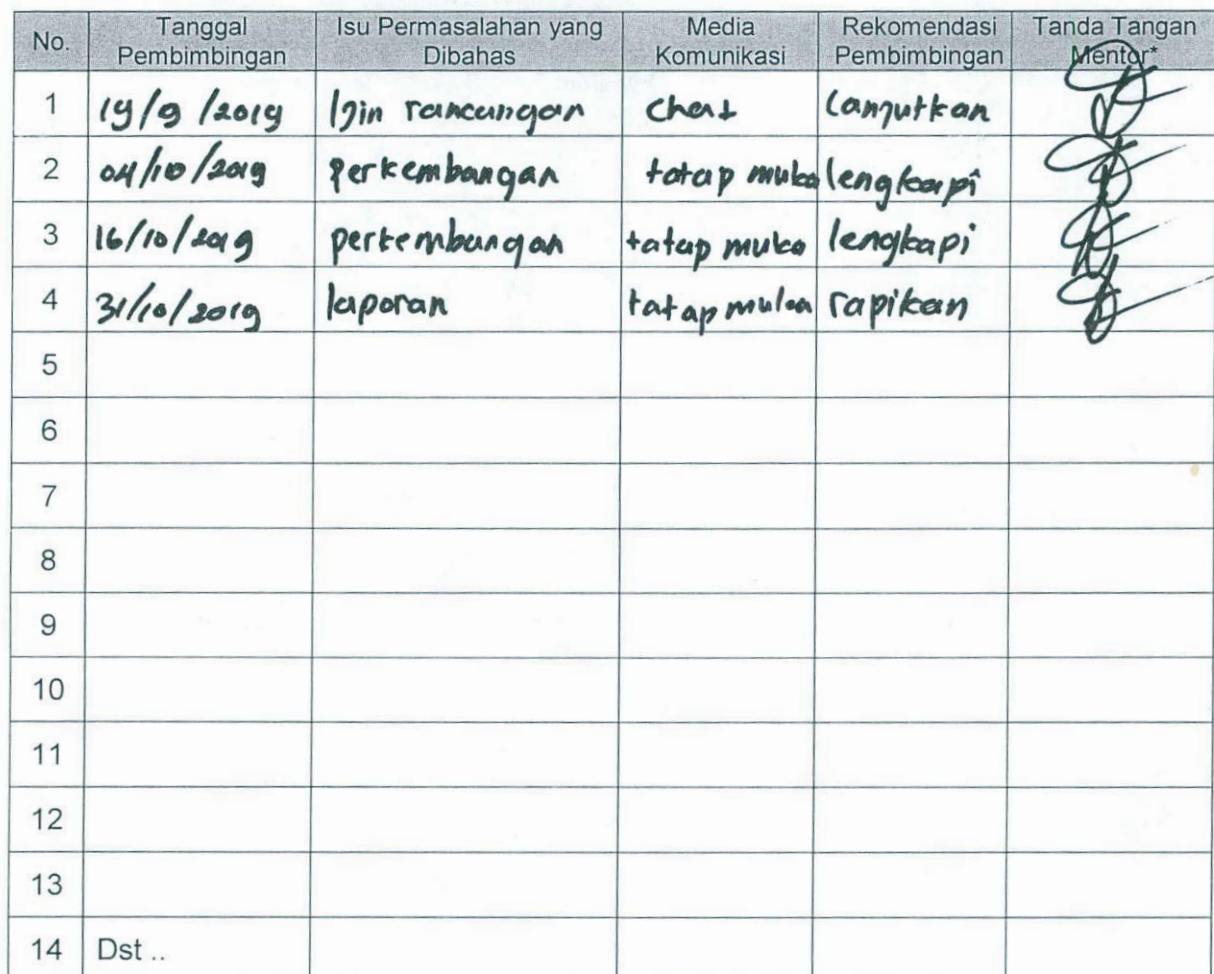 No. Tanggal Pembimbingan Isu Permasalahan yang Dibahas Media Komunikasi Rekomendasi Pembimbingan Tanda Tangan Mentor*
1 19/9/2019 Izin rancangan chat lanjutkan
2 04/10/2019 perkembangan tatap muka lengkapi
3 16/10/2019 perkembangan tatap muka lengkapi
4 31/10/2019 laporan tatap muka rapikan
5
6
7
8
9
10
11
12
13
14 Dst ..